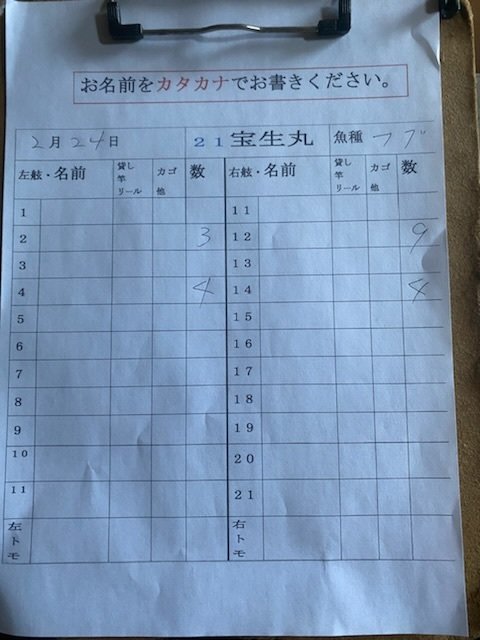 お名前をカタカナでお書きください。
2月24日 21宝生丸 魚種 フグ
左舷・名前 貸し竿リール カゴ他 数 右舷・名前 貸し竿リール カゴ他 数
1 11
2 3 12 9
3 13
4 4 14 4
5 15
6 16
7 17
8 18
9 19
10 20
11 21
左トモ 右トモ